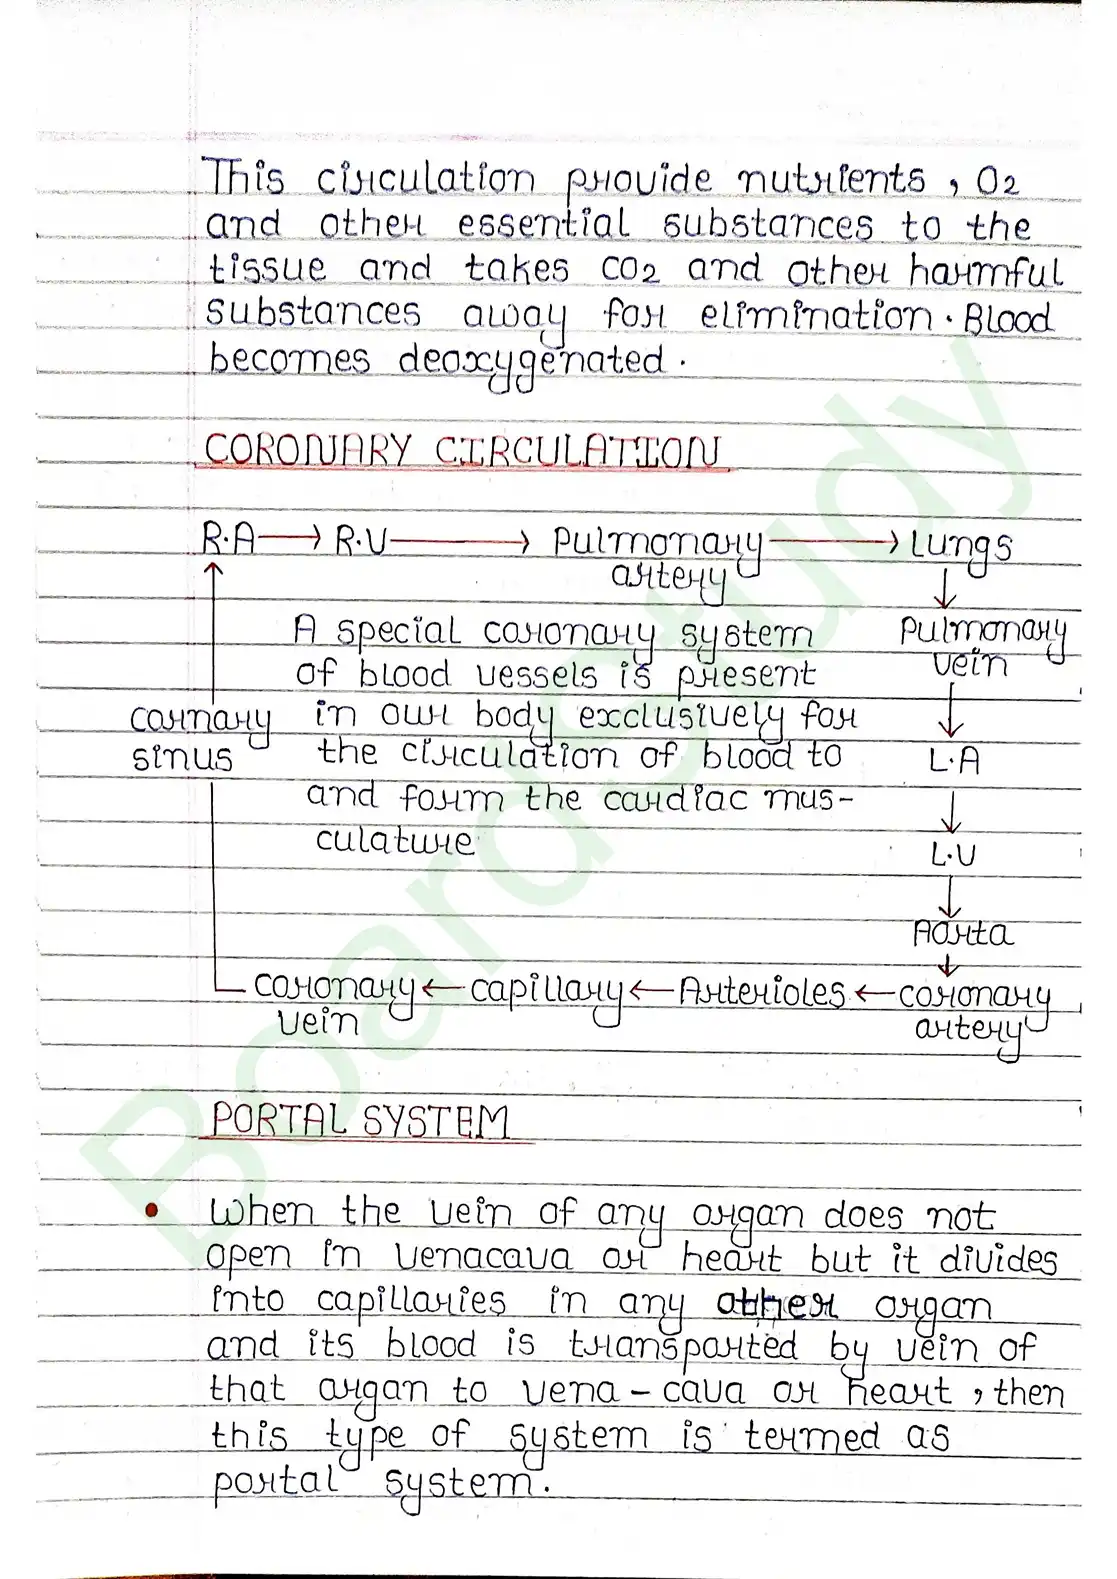 This circulation provide nutrients, O2
and other essential substances to the
tissue and takes CO2 and other harmful
substances away for elimination. Blood
becomes deoxygenated.
CORONARY CIRCULATION
R.A → R.V → Pulmonary artery → Lungs
A special coronary system
of blood vessels is present
in our body exclusively for
the circulation of blood to
and form the cardiac mus-
culature
Pulmonary
vein
L.A
L.V
Aorta
coronary
artery
← Arterioles
← capillary
← coronary
vein
cornary
sinus
PORTAL SYSTEM
• When the vein of any organ does not
open in venacava or heart but it divides
into capillaries in any other organ
and its blood is transported by vein of
that organ to vena-cava or heart, then
this type of system is termed as
portal system.
BoardStudy